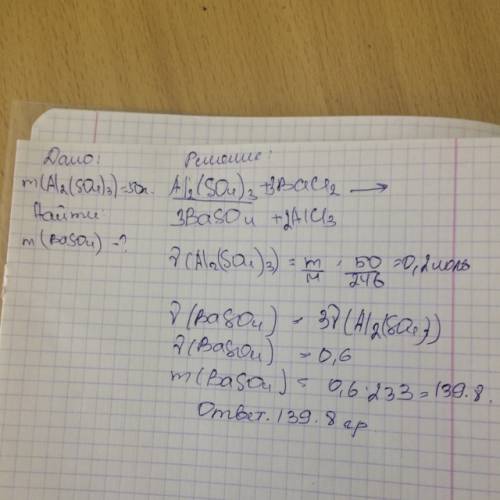 Дано:
m(Al₂(SO₄)₃)=50г.
Найти
m(BaSO₄) -?
Решение:
Al₂(SO₄)₃ +3BaCl₂ →
3BaSO₄ +2AlCl₃
ν(Al₂(SO₄)₃) = m/M = 50/246 =0,2моль
ν(BaSO₄) = 3ν(Al₂(SO₄)₃)
ν(BaSO₄) = 0,6
m(BaSO₄) = 0,6·233=139.8.
Ответ. 139.8 гр